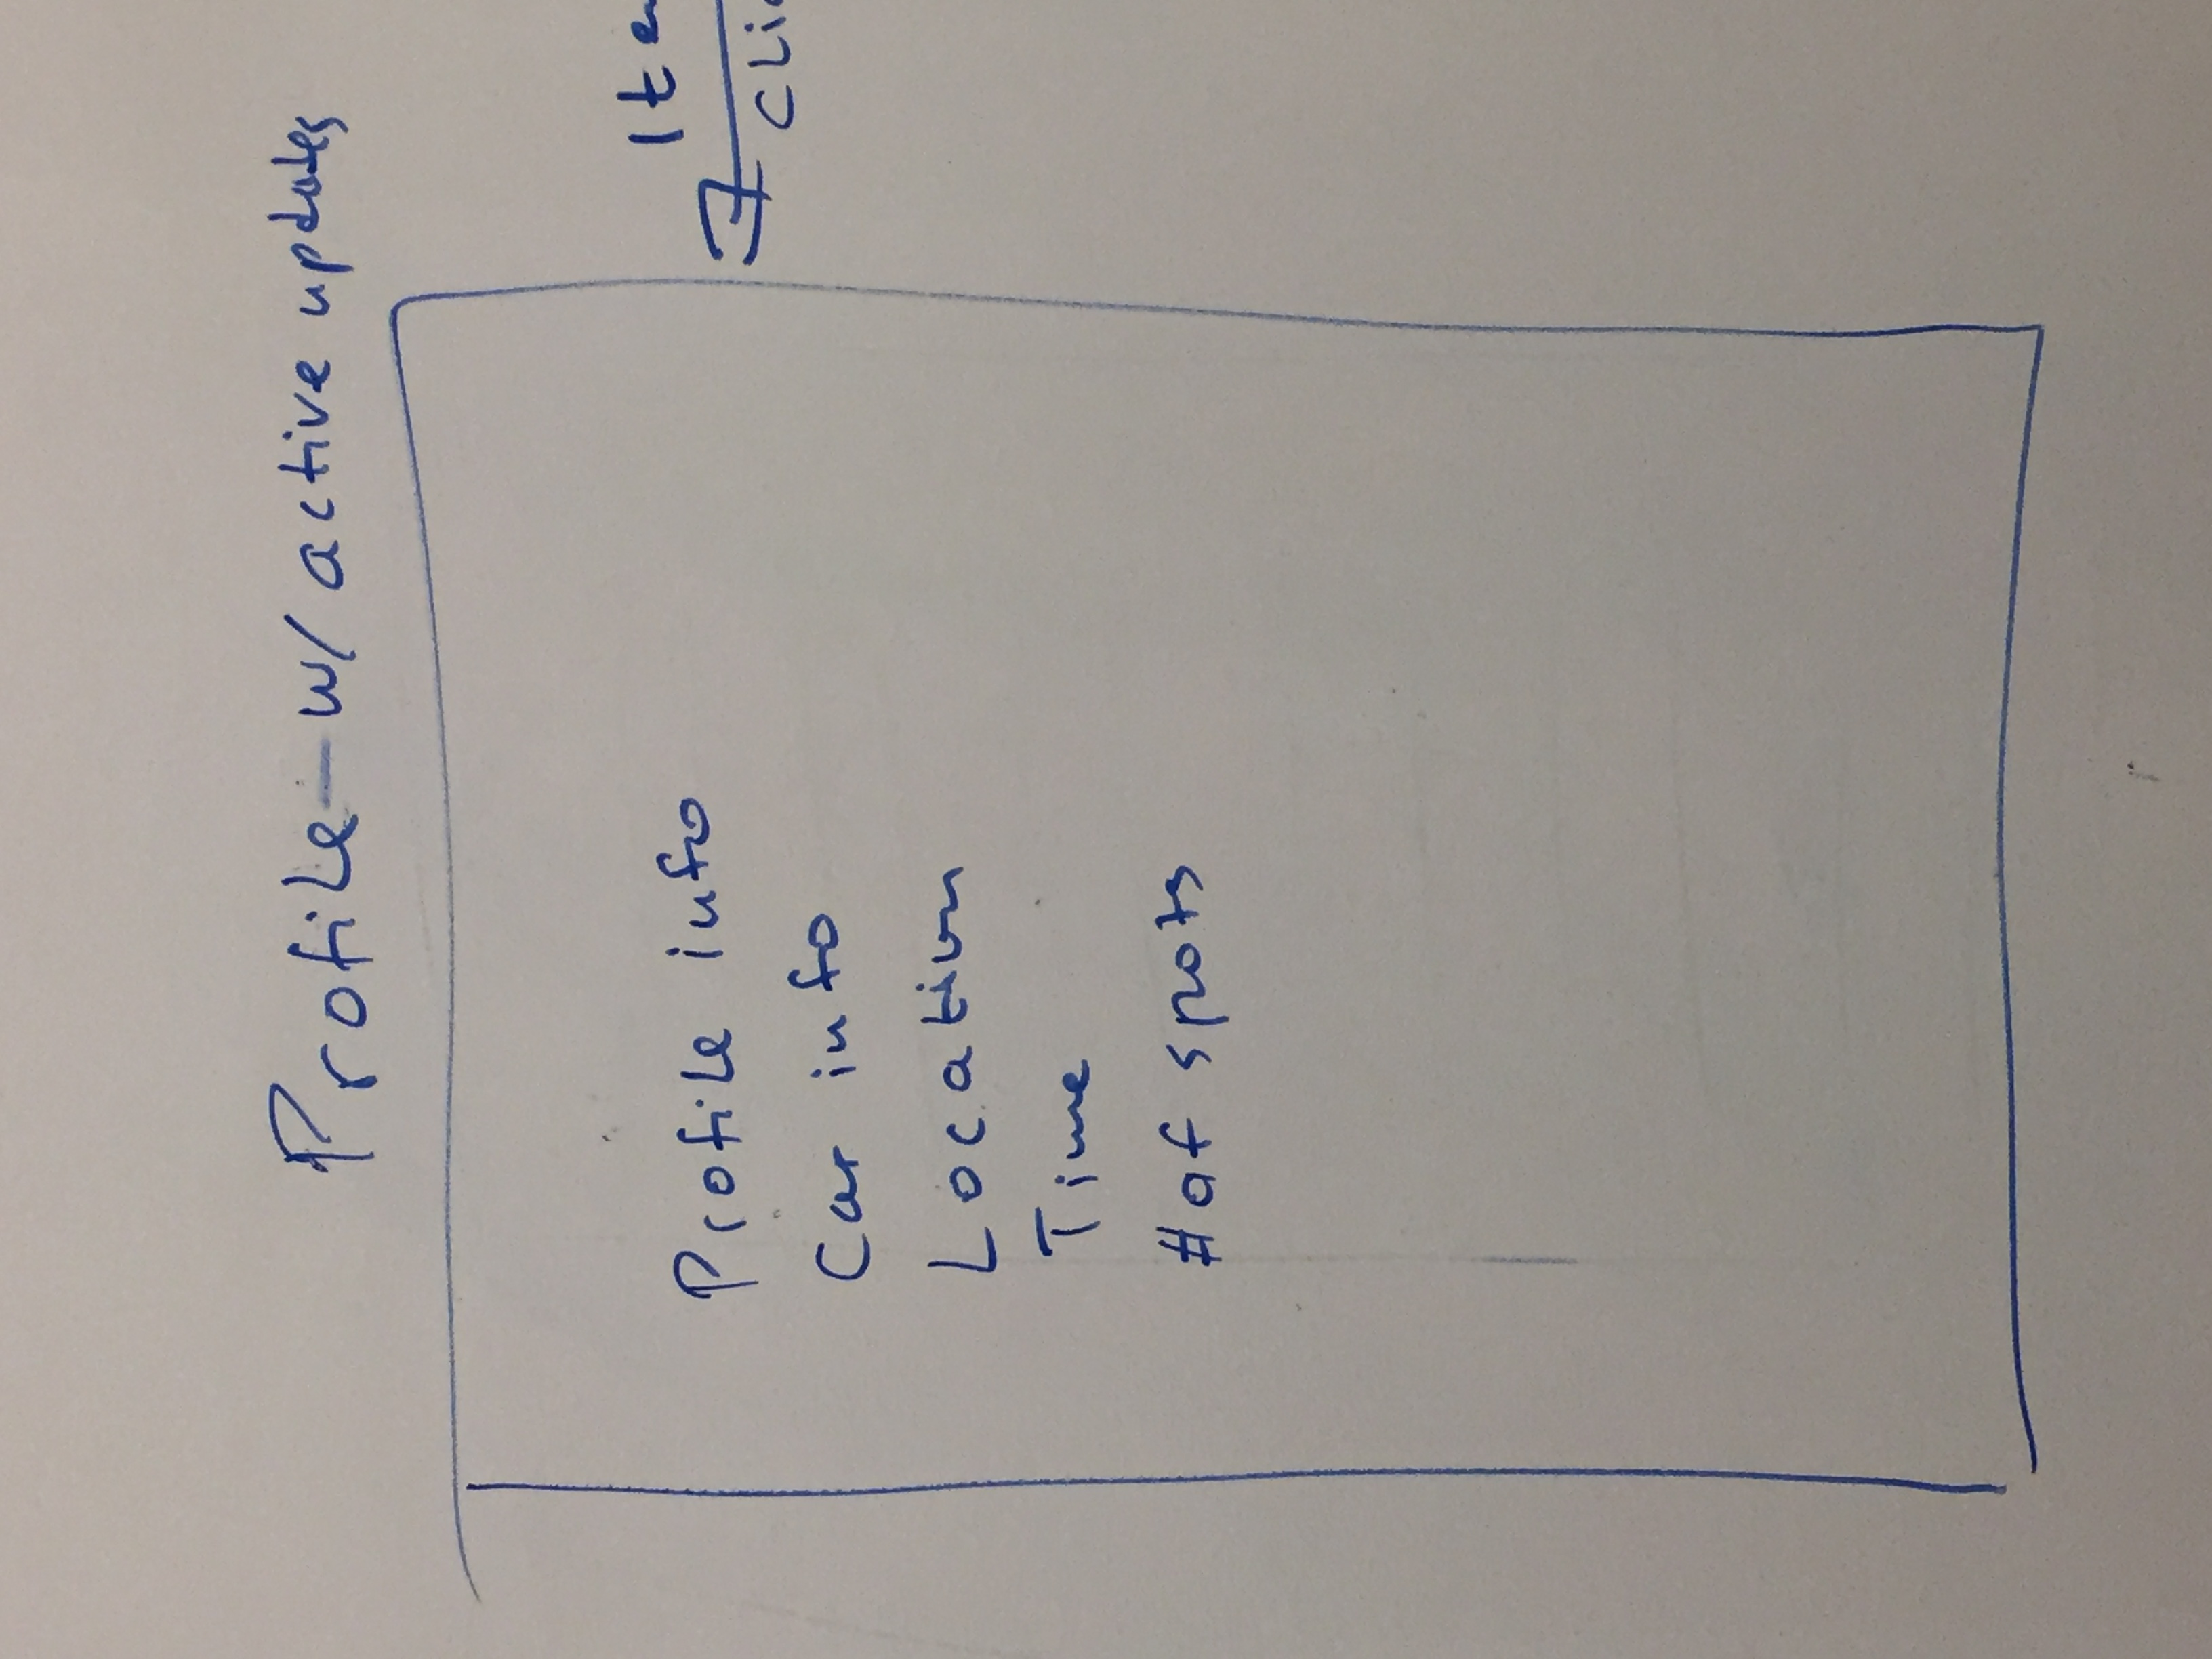 Profile - w/ active updates
Profile info
Car info
Location
Time
# of spots